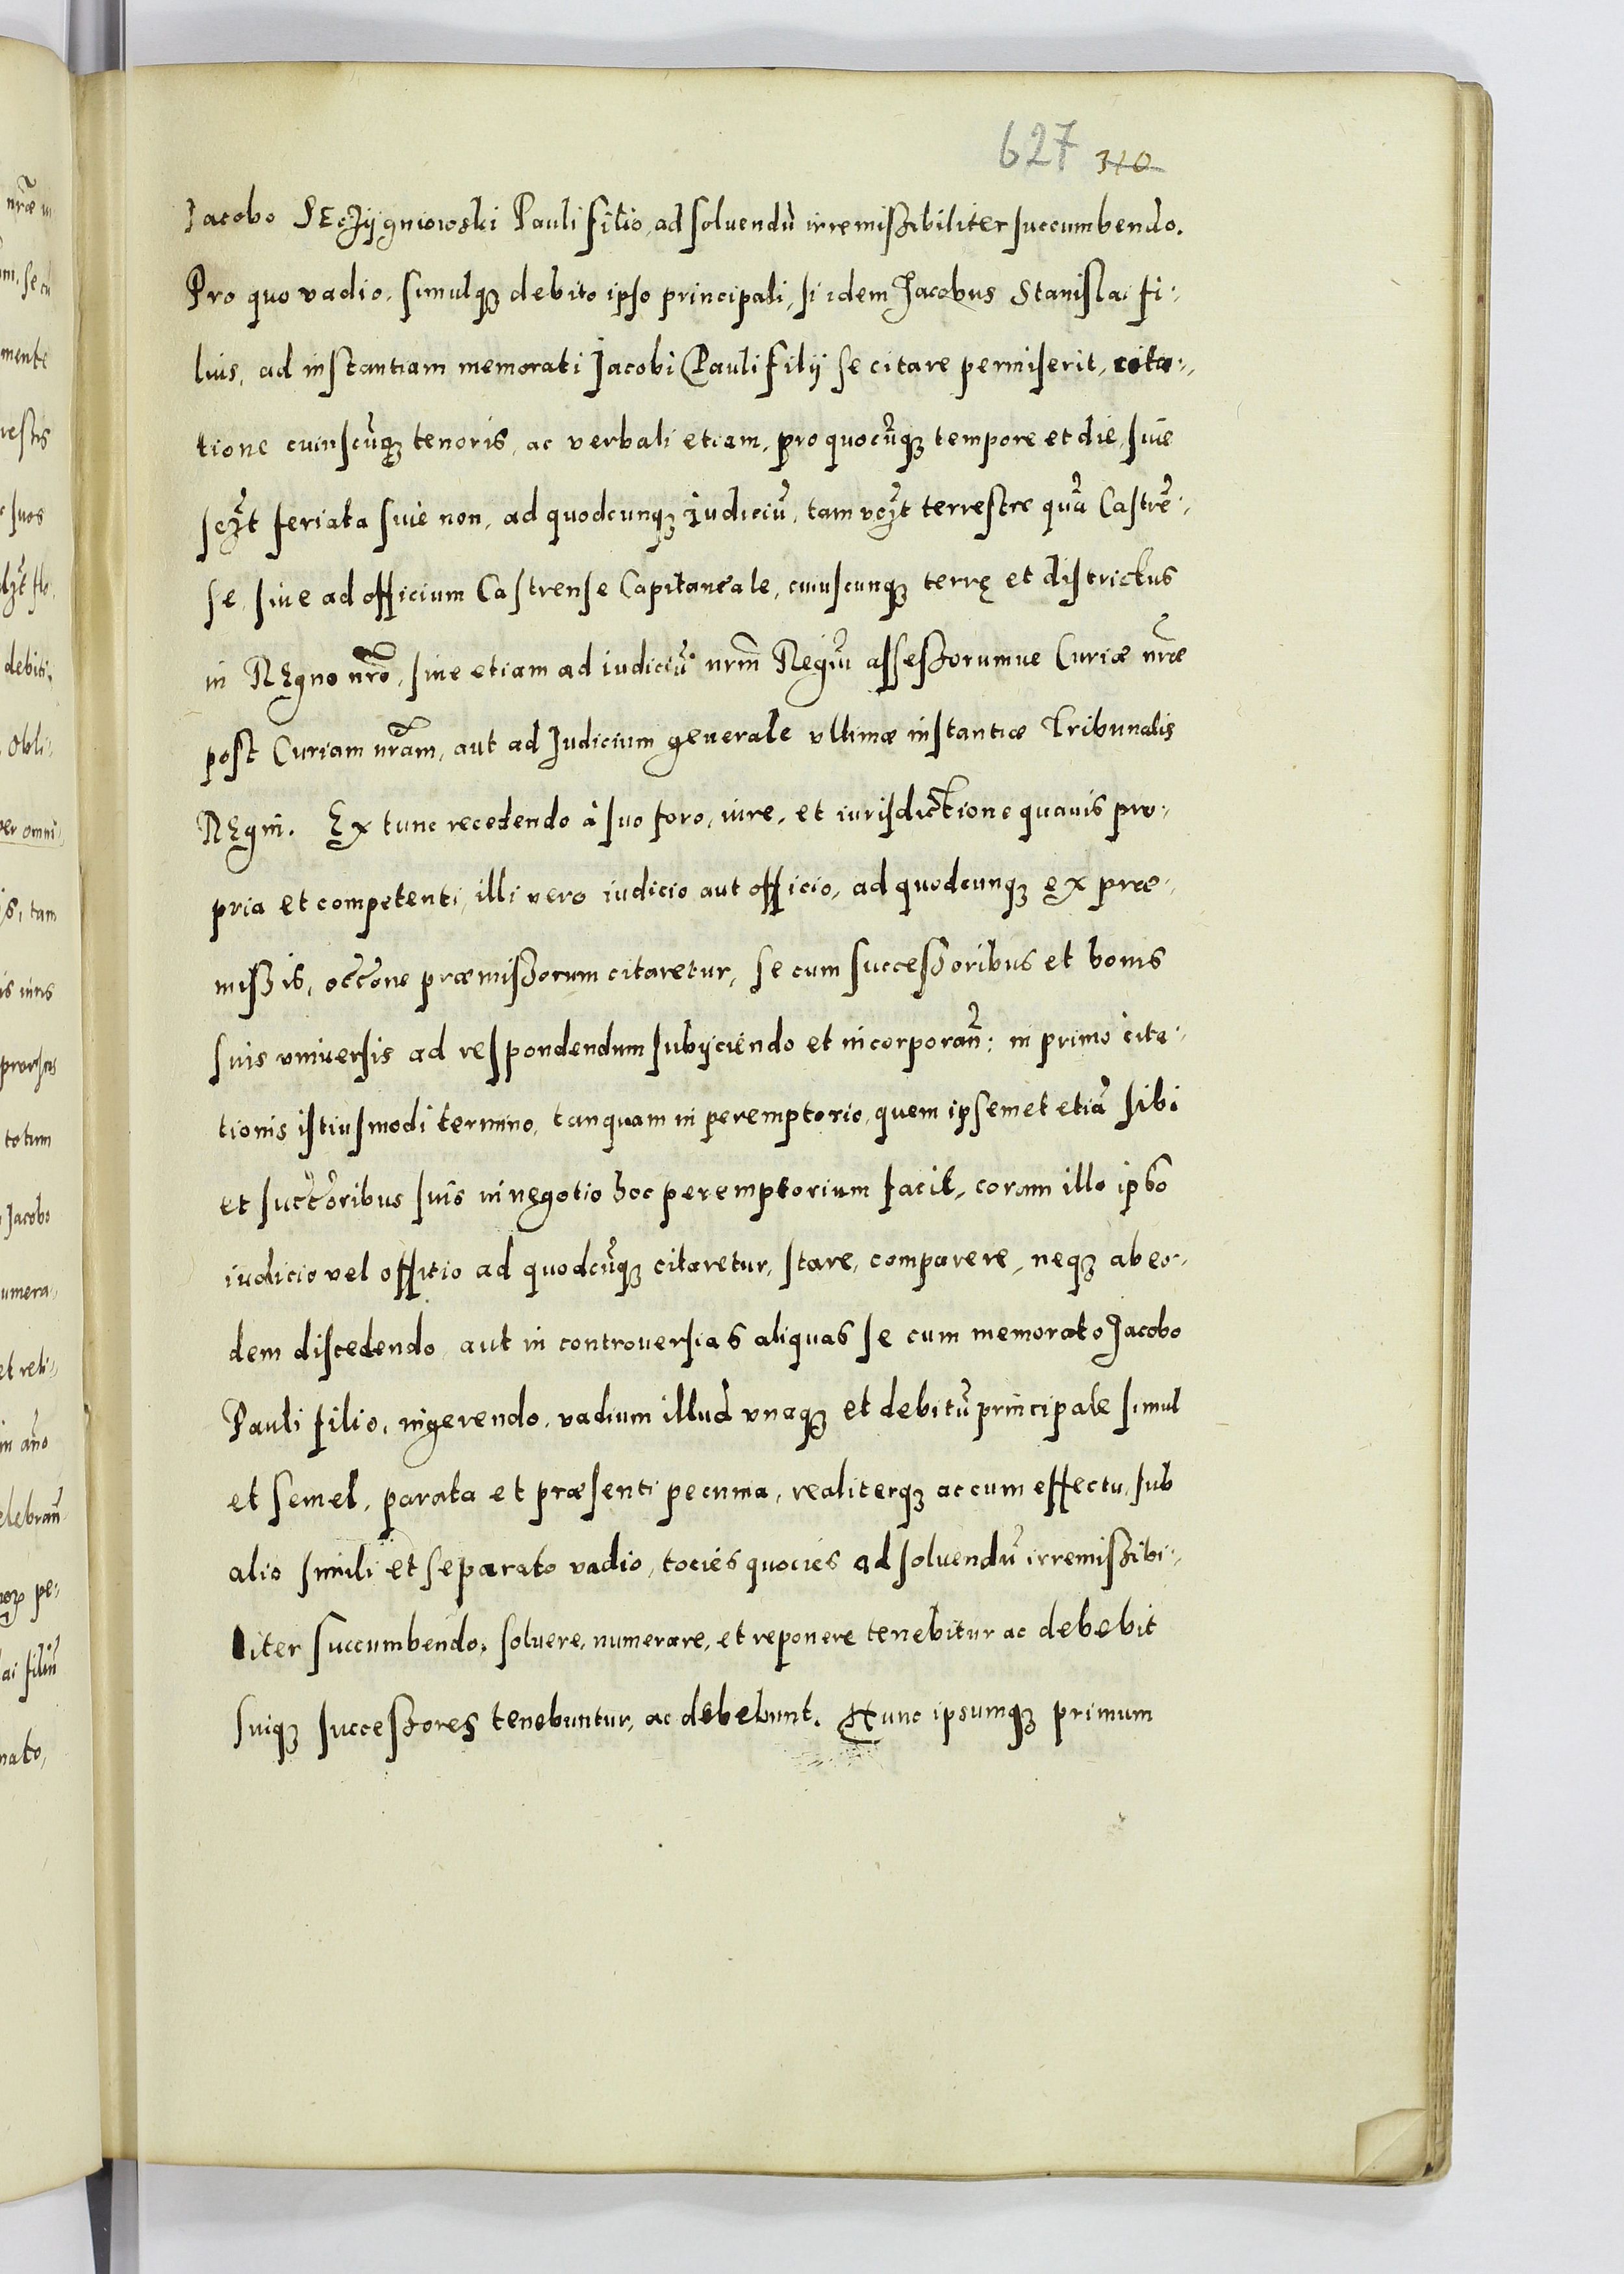 627 310
Jacobo SEczygniowski Pauli filio, ad soluendũ irremissibiliter succumbendo.
Pro quo vadio, simulqꝫ debito ipso principali, si idem Jacobus Stanislai fi:
lius, ad instantiam memorati Jacobi Pauli filij se citare permiserit, cita:
tione cuiuscũqꝫ tenoris, ac verbali etiam, pro quocũqꝫ tempore et die, siue
feriata siue non, ad quodcunqꝫ iudiciũ, tam terrestre quã Castrẽ:
se, siue ad officium Castrense Capitaneale, cuiuscunqꝫ terrę et districtus
in REgno nr̃o, siue etiam ad iudiciũ nrm̃ Regiũ assessorumue Curiæ nr̃æ
post Curiam nrãm, aut ad Judicium generale vltimæ instantiæ Tribunalis
REgni. Ex tunc recedendo à suo foro, iure, et iurisdictione quauis pro:
pria et competenti, illi vero iudicio aut officio, ad quodcunqꝫ ex præ:
missis, occõne præmissorum citaretur, se cum successoribus et bonis
suis vniuersis ad respondendum subijciendo et incorporañ: in primo cita:
tionis istiusmodi termino, tanquam in peremptorio, quem ipsemet etiã sibi
et succõribus suis in negotio hoc peremptorium facit, coram illo ipso
iudicio vel offitio ad quodcũqꝫ citaretur, stare, comparere, neqꝫ ab eo:
dem discedendo aut in controuersias aliquas se cum memorato Jacobo
Pauli filio, ingerendo, vadium illud vnaqꝫ et debitũ principale simul
et semel, parata et præsenti pecunia, realiterqꝫ ac cum effectu, sub
alio simili et separato vadio, tociés quociés ad soluendũ irremissibi:
liter succumbendo, soluere, numerare, et reponere tenebitur ac debebit
suiqꝫ successores tenebuntur, ac debebunt. Hunc ipsumqꝫ primum